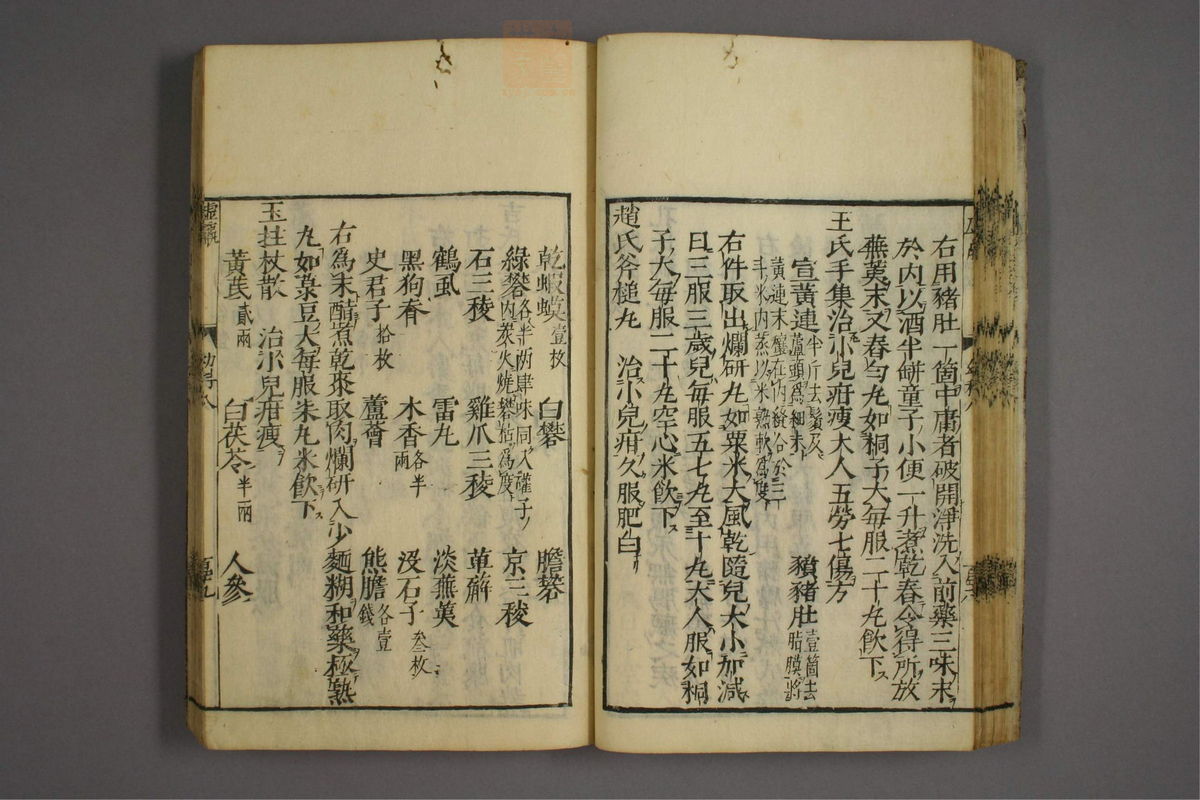 右用豬肚一箇中庸者破開淨洗入前藥三味末
於內以酒半缾童子小便一升煮乾舂令得所放
蕪荑末又舂勻丸如桐子大每服二十丸飲下
王氏手集治小兒疳瘦大人五勞七傷方
宣黃連半斤去鬚及蘆頭爲細末 豶豬肚壹箇去脂膜將
黃連末盛在內縫合於三斗米內蒸以米熟軟爲度
右件取出爛研丸如粟米大風乾隨兒大小加減
日三服三歲兒每服五七丸至十丸大人服如桐
子大每服二十丸空心米飲下
趙氏斧槌丸 治小兒疳久服肥白
乾蝦蟆壹枚 白礬 膽礬
綠礬各半兩肆味同入罐子內炭火燒礬枯爲度 京三稜
石三稜 雞爪三稜 萆薢
鶴虱 雷丸 淡蕪荑
黑狗脊 木香各半兩 沒石子叁枚
史君子拾枚 蘆薈 熊膽各壹錢
右爲末醋煮乾棗取肉爛研入少麵糊和藥極熟
丸如菉豆大每服朱丸米飲下
玉拄杖散 治小兒疳瘦
黃茋貳兩 白茯苓半兩 人參